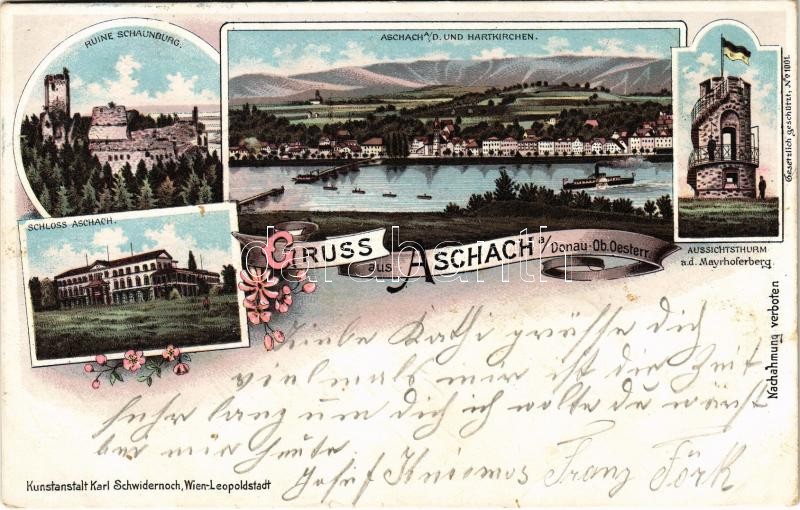 RUINE SCHAUNBURG.
ASCHACH A/D. UND HARTKIRCHEN.
SCHLOSS ASCHACH.
GRUSS aus ASCHACH a/Donau-Ob. Oesterr.
AUSSICHTSTHURM
a.d. Mayrhoferberg.
Gesetzlich geschützt, No 1001.
Nachahmung verboten
darabanth
Liebe Kathi grüsse dich
vielmals mir ist die Zeit
sehr lang um dich ich wolte du wärst
bei mir heute
Josef Franz
Kunstanstalt Karl Schwidernoch, Wien-Leopoldstadt